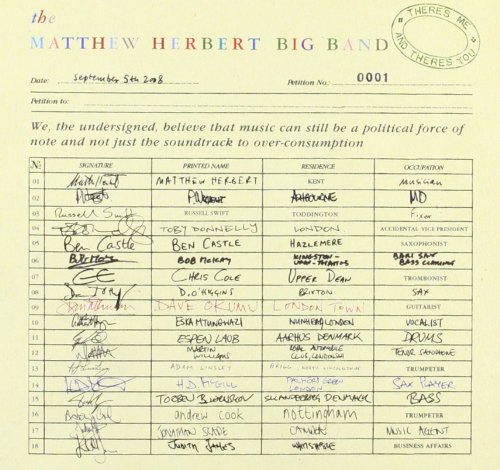 the
MATTHEW HERBERT BIG BAND
THERE'S ME AND THERE'S YOU
Date: September 5th 2008 Petition No.: 0001
Petition to:
We, the undersigned, believe that music can still be a political force of
note and not just the soundtrack to over-consumption
No. SIGNATURE PRINTED NAME RESIDENCE OCCUPATION
01 MATTHEW HERBERT KENT Musician
02 ASHBOURNE MD
03 Russell Swift RUSSELL SWIFT TODDINGTON Fixer
04 TOBY DONNELLY LONDON ACCIDENTAL VICE PRESIDENT
05 Ben Castle BEN CASTLE HAZLEMERE SAXOPHONIST
06 BOB McKAY KINGSTON-UPON-THAMES BARI SAX BASS CLARINET
07 CC CHRIS COLE UPPER DEAN TROMBONIST
08 D. O'HIGGINS BRIXTON SAX
09 DAVE OKUMU LONDON TOWN GUITARIST
10 ESKA MTUNGWAZI LONDON VOCALIST
11 ESPEN LAUB AARHUS DENMARK DRUMS
12 MARTIN WILLIAMS TENOR SAXOPHONE
13 ADAM LINSLEY BRIGG, NORTH LINCOLNSHIRE TRUMPETER
14 H.D. McGILL PALMERS GREEN LONDON SAX PLAYER
15 DENMARK BASS
16 andrew cook nottingham TRUMPETER
17 JONATHAN SLADE MUSIC AGENT
18 JUDITH WHITSTABLE BUSINESS AFFAIRS